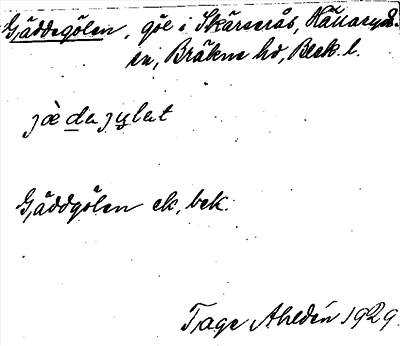 Gäddegölen, göl i Skärsnäs, Hällaryds
sn, Bräkne hd, Blek. l.
jæ̀dajylat
Gäddgölen ek, bek.
Tage Ahldén 1929.